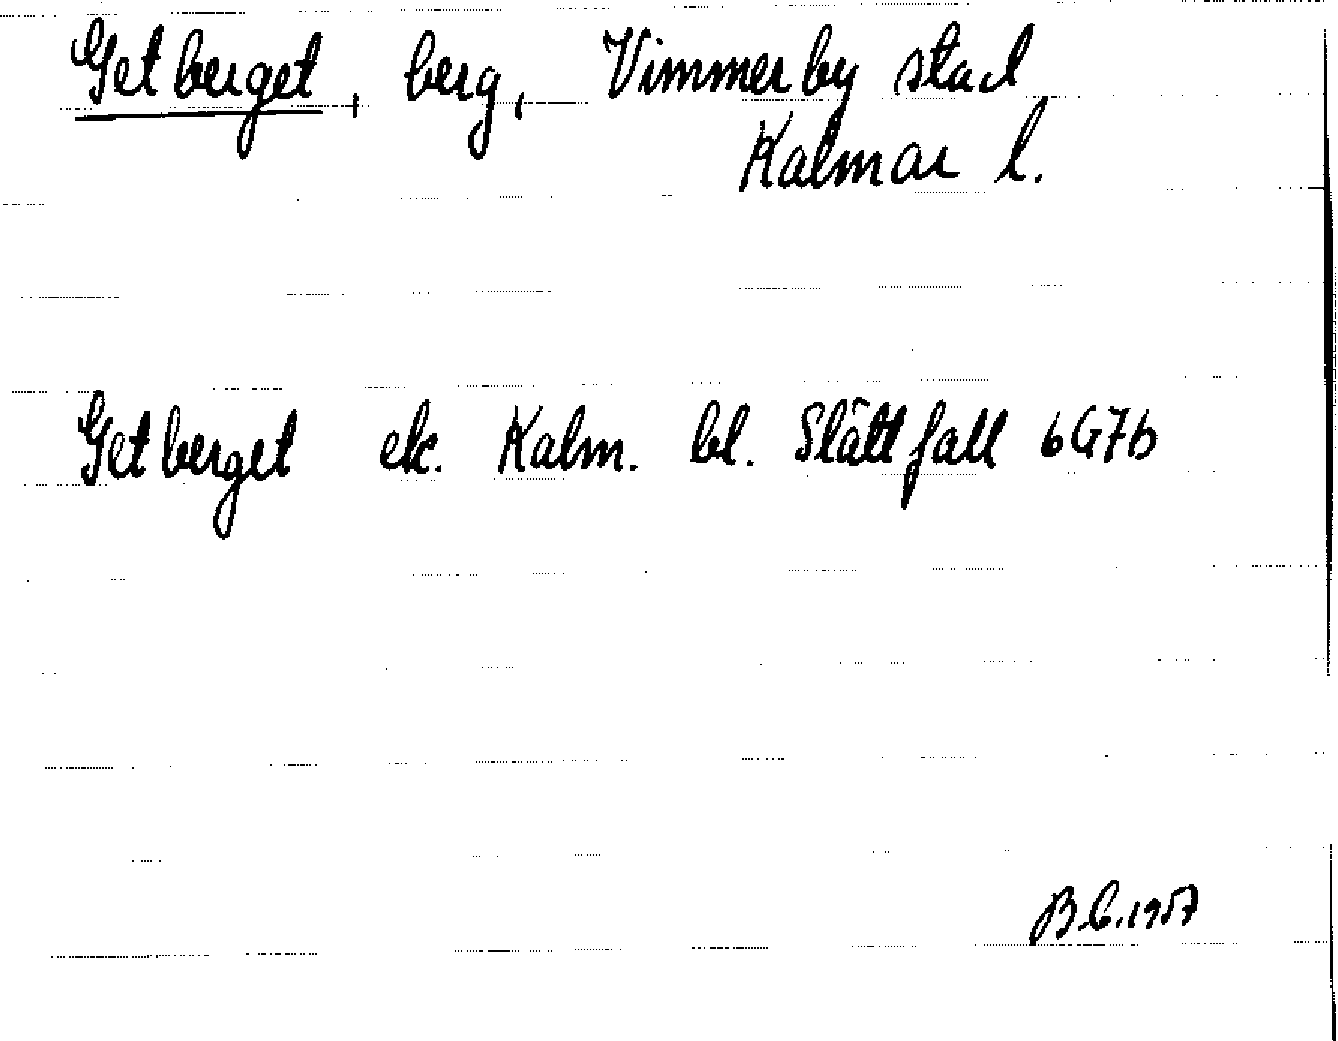 Getberget, berg, Vimmerby stad
Kalmar l.
Getberget ek. Kalm. bl. Slättfall 6G7b
B.L. 1957